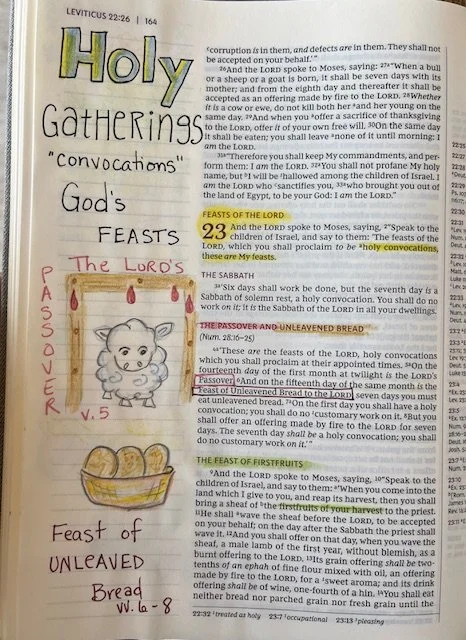 LEVITICUS 22:26 | 164
Holy
GATHERINGS
"CONVOCATIONS"
God's
FEASTS
The LORD'S
PASSOVER
V. 5
Feast of
UNLEAVED
Bread
VV. 6-8
corruption is in them, and defects are in them. They shall not
be accepted on your behalf.'"
26And the LORD spoke to Moses, saying: 27"When a bull
or a sheep or a goat is born, it shall be seven days with its
mother; and from the eighth day and thereafter it shall be
accepted as an offering made by fire to the LORD. 28Whether
it is a cow or ewe, do not kill both her and her young on the
same day. 29And when you offer a sacrifice of thanksgiving
to the LORD, offer it of your own free will. 30On the same day
it shall be eaten; you shall leave none of it until morning: I
am the LORD.
31"Therefore you shall keep My commandments, and per-
form them: I am the LORD. 32You shall not profane My holy
name, but I will be hallowed among the children of Israel. I
am the LORD who sanctifies you, 33who brought you out of
the land of Egypt, to be your God: I am the LORD."
FEASTS OF THE LORD
23 And the LORD spoke to Moses, saying, 2"Speak to the
children of Israel, and say to them: 'The feasts of the
LORD, which you shall proclaim to be holy convocations,
these are My feasts.
THE SABBATH
3'Six days shall work be done, but the seventh day is a
Sabbath of solemn rest, a holy convocation. You shall do no
work on it; it is the Sabbath of the LORD in all your dwellings.
THE PASSOVER AND UNLEAVENED BREAD
(Num. 28:16–25)
4'These are the feasts of the LORD, holy convocations
which you shall proclaim at their appointed times. 5On the
fourteenth day of the first month at twilight is the LORD's
Passover. 6And on the fifteenth day of the same month is the
Feast of Unleavened Bread to the LORD; seven days you must
eat unleavened bread. 7On the first day you shall have a holy
convocation; you shall do no customary work on it. 8But you
shall offer an offering made by fire to the LORD for seven
days. The seventh day shall be a holy convocation; you shall
do no customary work on it.'"
THE FEAST OF FIRSTFRUITS
9And the LORD spoke to Moses, saying, 10"Speak to the
children of Israel, and say to them: 'When you come into the
land which I give to you, and reap its harvest, then you shall
bring a sheaf of the firstfruits of your harvest to the priest.
11He shall wave the sheaf before the LORD, to be accepted
on your behalf; on the day after the Sabbath the priest shall
wave it. 12And you shall offer on that day, when you wave the
sheaf, a male lamb of the first year, without blemish, as a
burnt offering to the LORD. 13Its grain offering shall be two-
tenths of an ephah of fine flour mixed with oil, an offering
made by fire to the LORD, for a sweet aroma; and its drink
offering shall be of wine, one-fourth of a hin. 14You shall eat
neither bread nor parched grain nor fresh grain until the
22:32 treated as holy 23:7 occupational 23:13 pleasing